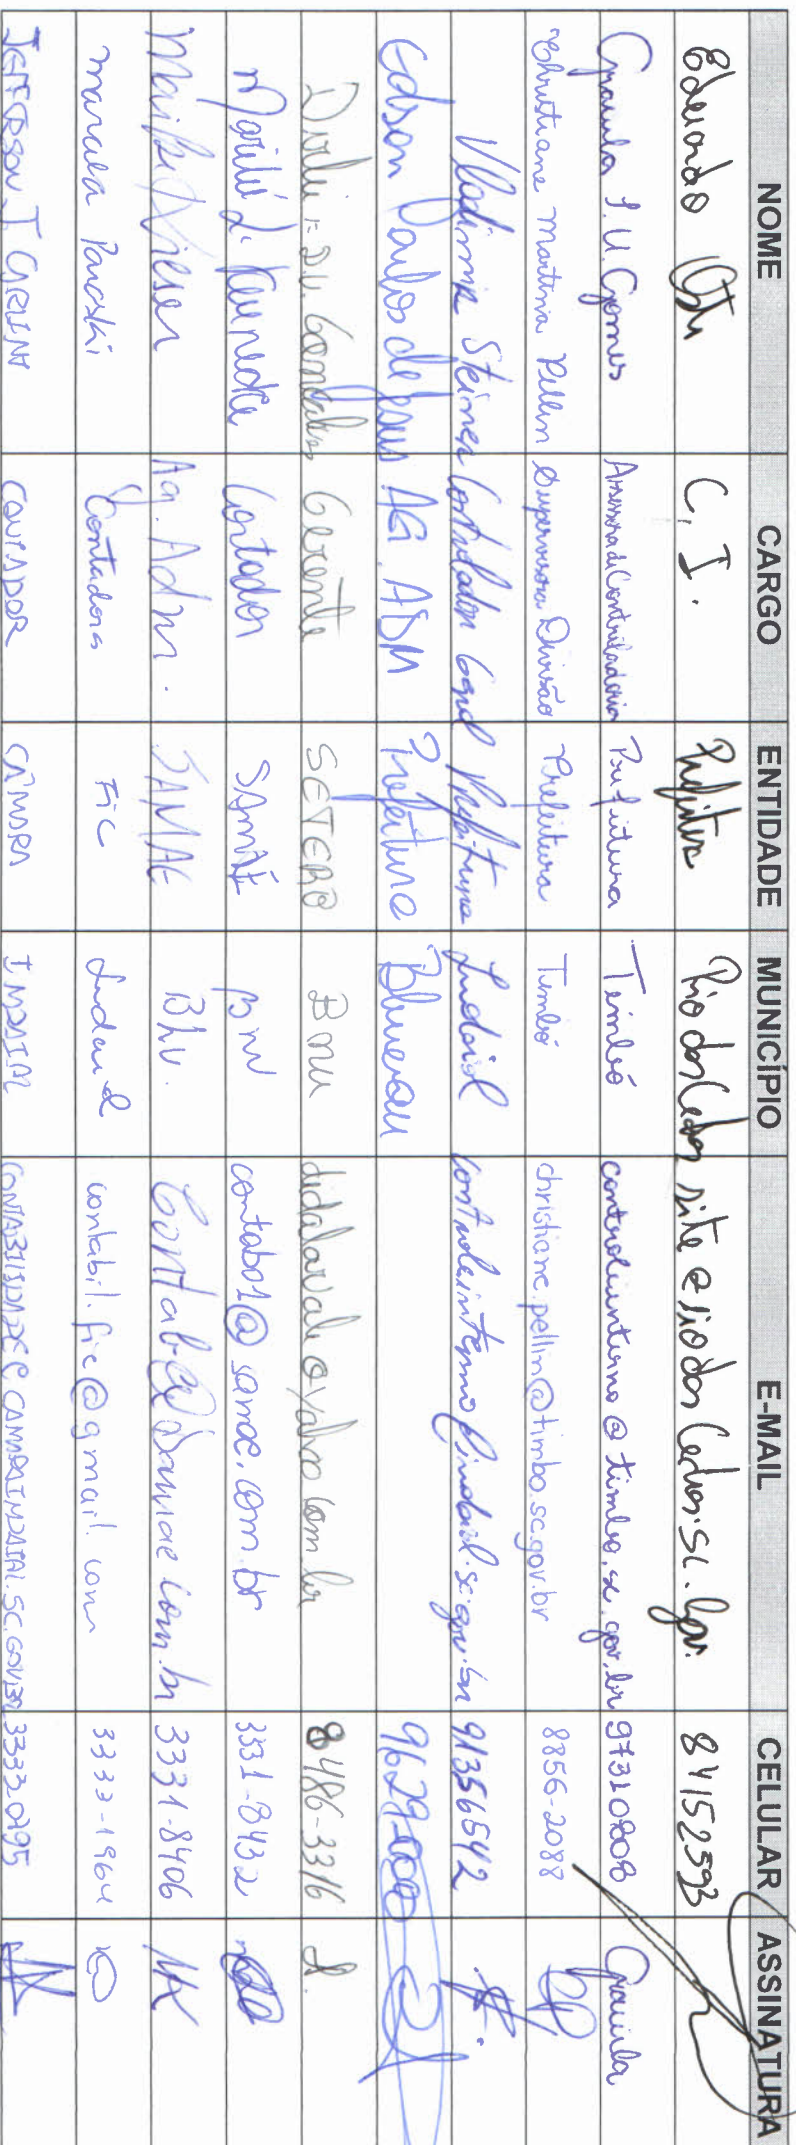 NOME CARGO ENTIDADE MUNICÍPIO E-MAIL CELULAR ASSINATURA
Eduardo C.I. Prefeitura Rio dos Cedros site@riodosCedros.sc.gov. 84152593
Graciela S.U. Gomes Assessora de Controladoria Prefeitura Timbó controleinterno@timbo.sc.gov.br 97310808 Graciela
Christiane Martinia Pellin Supervisora Divisão Prefeitura Timbó christiane.pellin@timbo.sc.gov.br 8856-2088
Vladimir Steiner Controlador Geral Prefeitura Indaial controleinterno@indaial.sc.gov.br 91356542
Edson Carlos de Jesus AG. ADM Prefeitura Blumenau
D.V. Goncalves Gerente SETERB Bnu didalavale@yahoo.com.br 8486-3316
Contador SAMAE Bnu contabo1@samae.com.br 3331-8432
Ag. Adm. SAMAE Blu. Contab@Samae.com.br 3331-8406
Marcela Contadora FIC Indaial contabil.fic@gmail.com 3333-1964
JEFFERSON J. CONTADOR CÂMARA INDAIAL CONTABILIDADE@CAMARAINDAIAL.SC.GOV.BR 33330795